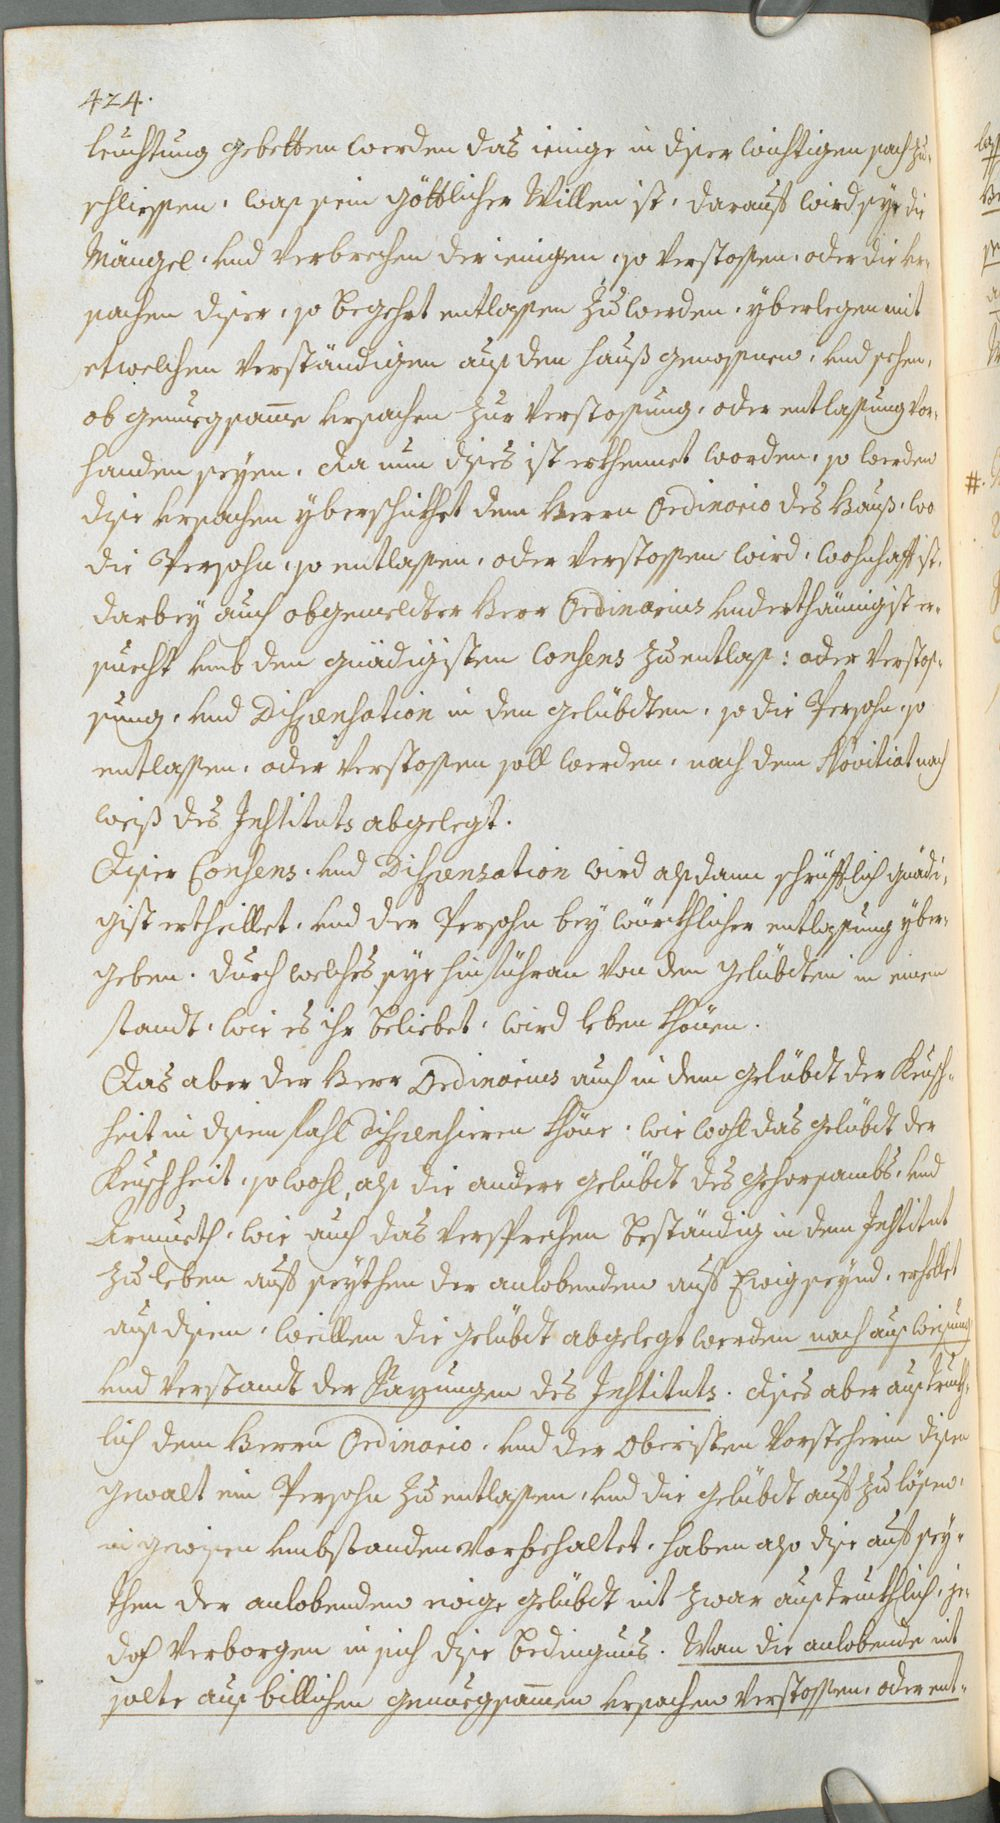 424.
leuchtung gebetten werden das ienige in diser wichtigen sach zu-
schliessen, was sein göttlicher Willen ist, darauff wird sye die
Mängel, und verbrechen der ienigen, so verstossen, oder die Ur-
sachen diser, so begehrt entlassen zu werden, yberlegen mit
etwelchen verständigen aus den hauß genossnen, und sehen,
ob genuegsame ursachen zur verstossung, oder entlassung vor-
handen seyen. Da nun dises ist erkhennet worden, so werden
dise ursachen yberschikhet dem Herrn Ordinario des Hauß, wo
die Persohn, so entlassen, oder verstossen wird, wohnhafft ist,
darbey auch obgemeldter Herr Ordinarius underthänigist er-
suecht umb den gnädigisten Consens zu entlass: oder verstos-
sung, und Dispensation in den gelübdten, so die Persohn, so
entlassen, oder verstossen soll werden, nach dem Novitiat nach
weiß des Instituts abgelegt.
Diser Consens, und Dispensation wird alsdann schrüfftlich gnädi-
gist ertheillet, und der Persohn bey würkhlicher entlassung yber-
geben. durch welches sye hinführan von den gelübdten in einem
standt, wie es ihr beliebet, wird leben khönen.
Das aber der Herr Ordinarius auch in dem gelübdt der Keusch-
heit in disem fahl dispensieren khöne, wie wohl das gelübdt der
Keuschheit, so wohl, als die andere gelübdt des gehorsambs, und
Armueth, wie auch das versprechen beständig in dem Institut
zu leben auff seythen der anlobenden auff Ewig seynd, erhellet
aus disem, weillen die gelübdt abgelegt werden nach ausweisung
und verstandt der Sazungen des Instituts. dises aber austrukh-
lich dem Herrn Ordinario, und der Oberisten Vorsteherin disen
gewalt ein Persohn zu entlassen, und die gelübdt auff zu lösen,
in gewisen umbstanden vorbehaltet, haben also dise auff sey-
then der anlobenden ewige gelübdt nit zwar austrukhlich, je-
doch verborgen in sich dise bedingnus. Wan die anlobende nit
solte aus billichen genuegsamen ursachen verstossen, oder ent-